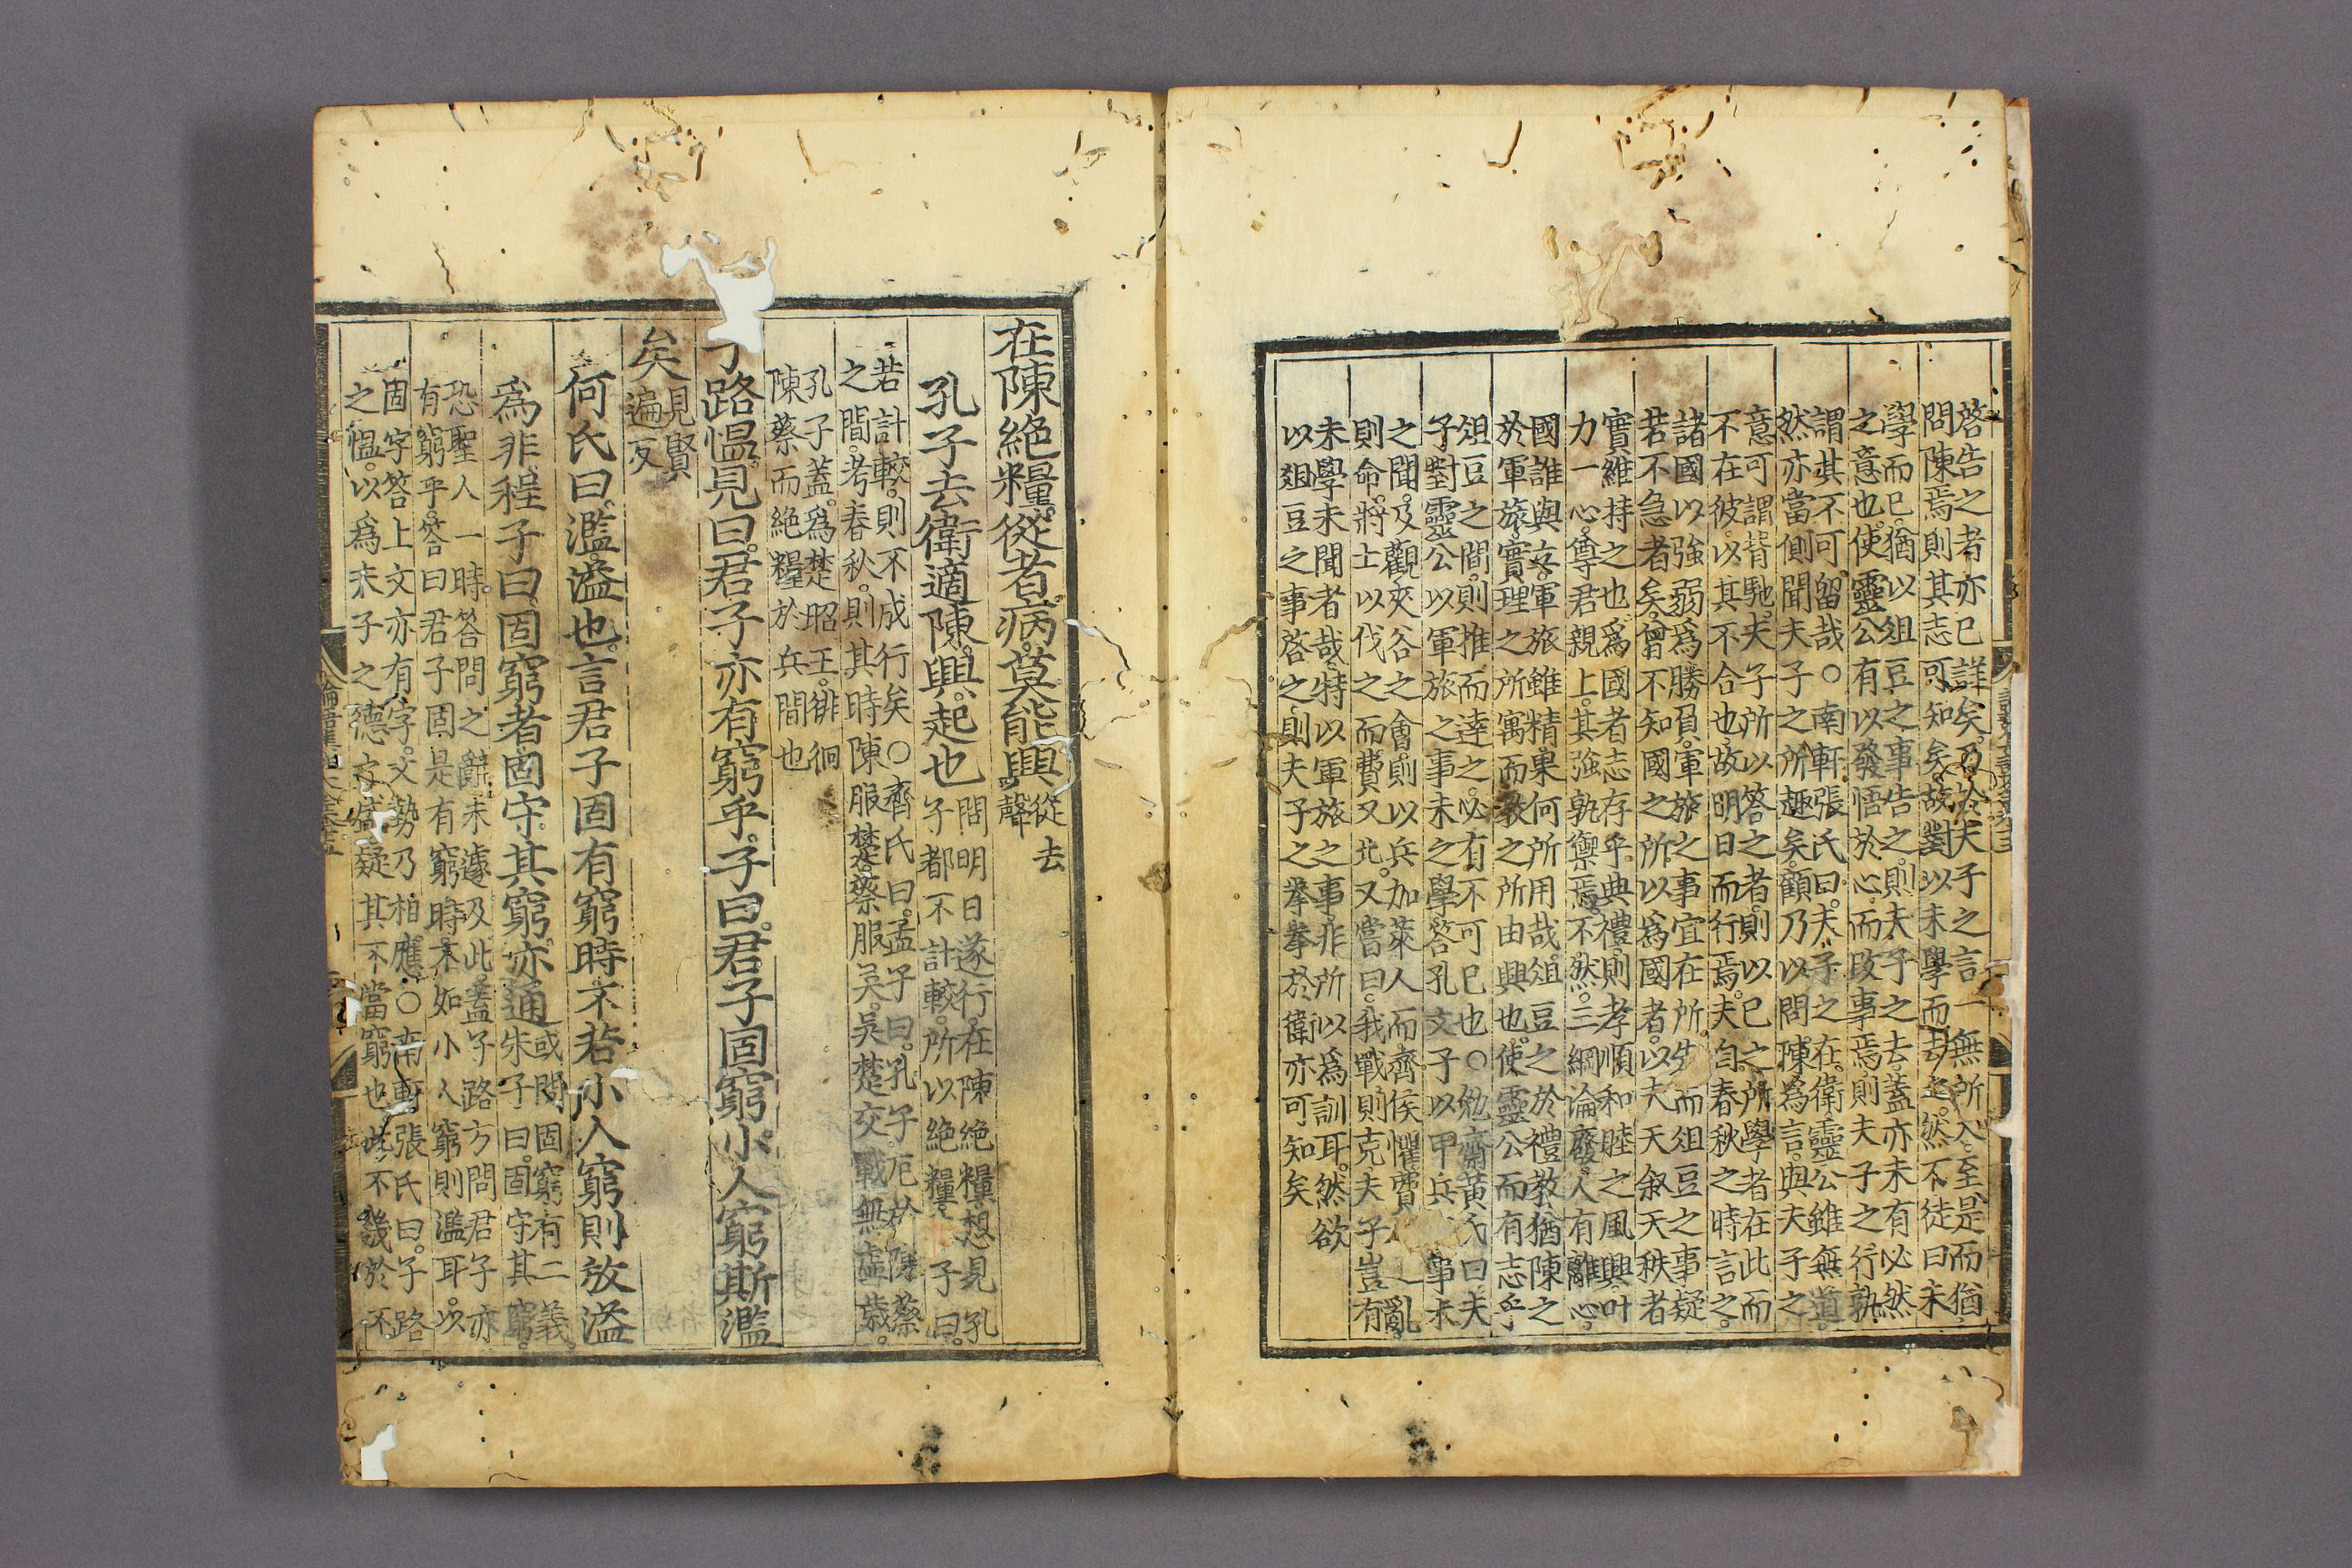 啓告之者亦已詳矣乃於夫子之言一無所入至是而猶
問陳焉則其志可知矣故對以未學而去之然不徒曰未
學而已猶以俎豆之事告之則夫子之去蓋亦未有必然
之意也使靈公有以發悟於心而改事焉則夫子之行孰
謂其不可留哉○南軒張氏曰夫子之在衛靈公雖無道
然亦當側聞夫子之所趣矣顧乃以問陳爲言與夫子之
意可謂背馳夫子所以答之者則以已之所學者在此而
不在彼以其不合也故明日而行焉夫自春秋之時言之
諸國以強弱爲勝負軍旅之事宜在所先而俎豆之事疑
若不急者矣曾不知國之所以爲國者以夫天叙天秩者
實維持之也爲國者志存乎典禮則孝順和睦之風興叶
力一心尊君親上其強孰禦焉不然三綱淪廢人有離心
國誰與立軍旅雖精果何所用哉俎豆之於禮敎猶陳之
於軍旅實理之所寓而敎之所由興也使靈公而有志乎
俎豆之間則推而達之必有不可已也○勉齋黃氏曰夫
子對靈公以軍旅之事未之學答孔文子以甲兵 事未
之聞及觀夾谷之會則以兵加萊人而齊侯懼費人 亂
則命將士以伐之而費又北又嘗曰我戰則克夫子豈有
未學未聞者哉特以軍旅之事非所以爲訓耳然欲
以俎豆之事啓之則夫子之拳拳於衛亦可知矣
在陳絶糧從者病莫能興從去
聲
孔子去衛適陳興起也問明日遂行在陳絶糧想見孔
子都不計較所以絶糧 子曰
若計較則不成行矣○齊氏曰孟子曰孔子厄於陳蔡
之間考春秋則其時陳服楚蔡服吳吳楚交戰無虛歲
孔子蓋爲楚昭王徘徊
陳蔡而絶糧於兵間也
子路慍見曰君子亦有窮乎子曰君子固窮小人窮斯濫
矣見賢
遍反
何氏曰濫溢也言君子固有窮時不若小人窮則放溢
爲非程子曰固窮者固守其窮亦通或問固窮有二義
朱子曰固守其窮
恐聖人一時答問之辭未遽及此蓋子路方問君子亦
有窮乎答曰君子固是有窮時不如小人窮則濫耳以
固字答上文亦有字文勢乃相應○南軒張氏曰子路
之慍以爲夫子之德 疑其不當窮也 不幾於不